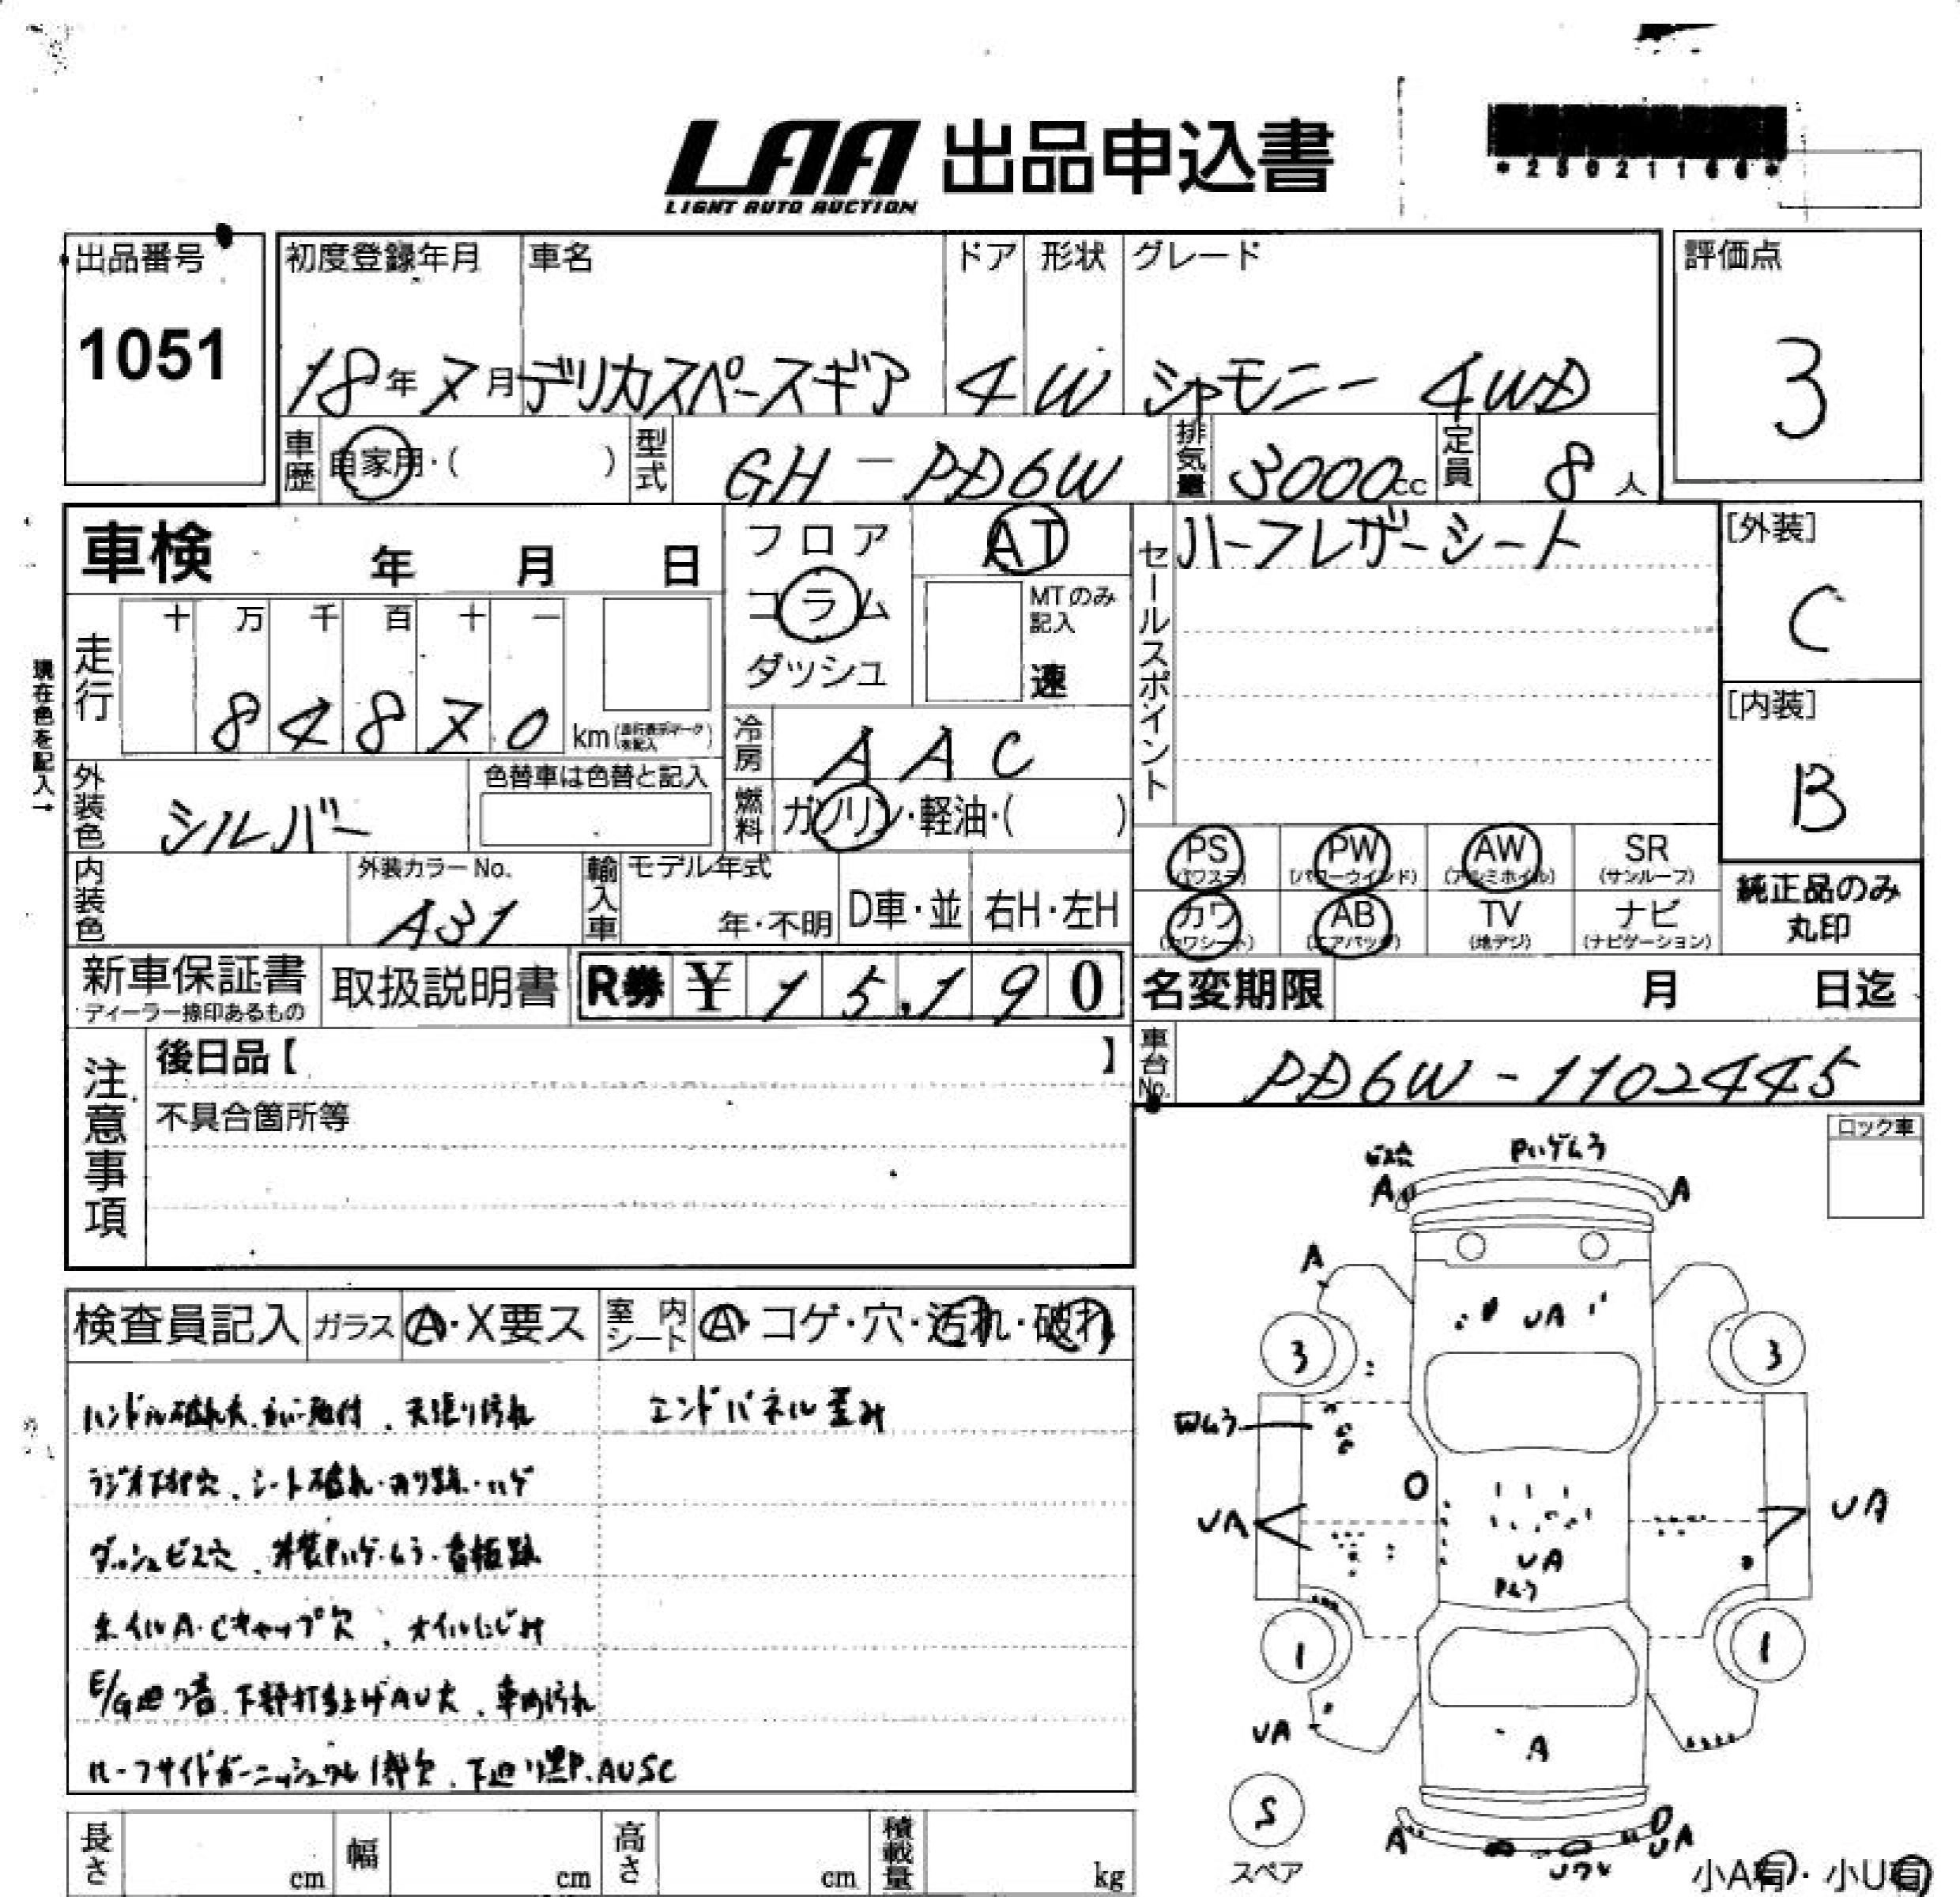 LAA 出品申込書
LIGHT AUTO AUCTION
*25021166*
出品番号
1051
初度登録年月 車名 ドア 形状 グレード
18年 7月 デリカスペースギア 4 W シャモニー 4WD
評価点
3
車歴 自家用・( ) 型式 GH-PD6W 排気量 3000cc 定員 8人
車検 年 月 日
フロア
コラム
ダッシュ
AT
MTのみ
記入
速
セールスポイント
ハーフレザーシート
[外装]
C
[内装]
B
現在色を記入→
走行
十 万 千 百 十 一
8 4 8 7 0 km
冷房 AAC
外装色 シルバー
色替車は色替と記入
燃料 ガソリン・軽油・( )
内装色
外装カラーNo.
A31
輸入車
モデル年式
年・不明 D車・並 右H・左H
PS (パワステ) PW (パワーウインド) AW (アルミホイル) SR (サンルーフ)
カワ (カワシート) AB (エアバッグ) TV (地デジ) ナビ (ナビゲーション)
純正品のみ
丸印
新車保証書
ディーラー捺印あるもの
取扱説明書
R券 ¥ 15,190
名変期限 月 日迄
車台No. PD6W-1102445
注意事項
後日品【 】
不具合箇所等
ロック車
検査員記入 ガラス A・X要ス 室内シート A・コゲ・穴・汚れ・破れ
ハンドル破れ大 天張り汚れ
エンドパネル歪み
シート破れ ハゲ
ダッシュビス穴
ホイルA・Cキャップ欠、オイルにじみ
下部打ち上げAU大、車内汚れ
ルーフサイドガーニッシュ 下廻り AUSC
ビス穴
Pハゲムラ
A A
A
UA
3 3
O
UA UA
UA
Pムラ
1 1
UA
A
S
スペア
A
UA
小A有・小U有
長さ cm 幅 cm 高さ cm 積載量 kg